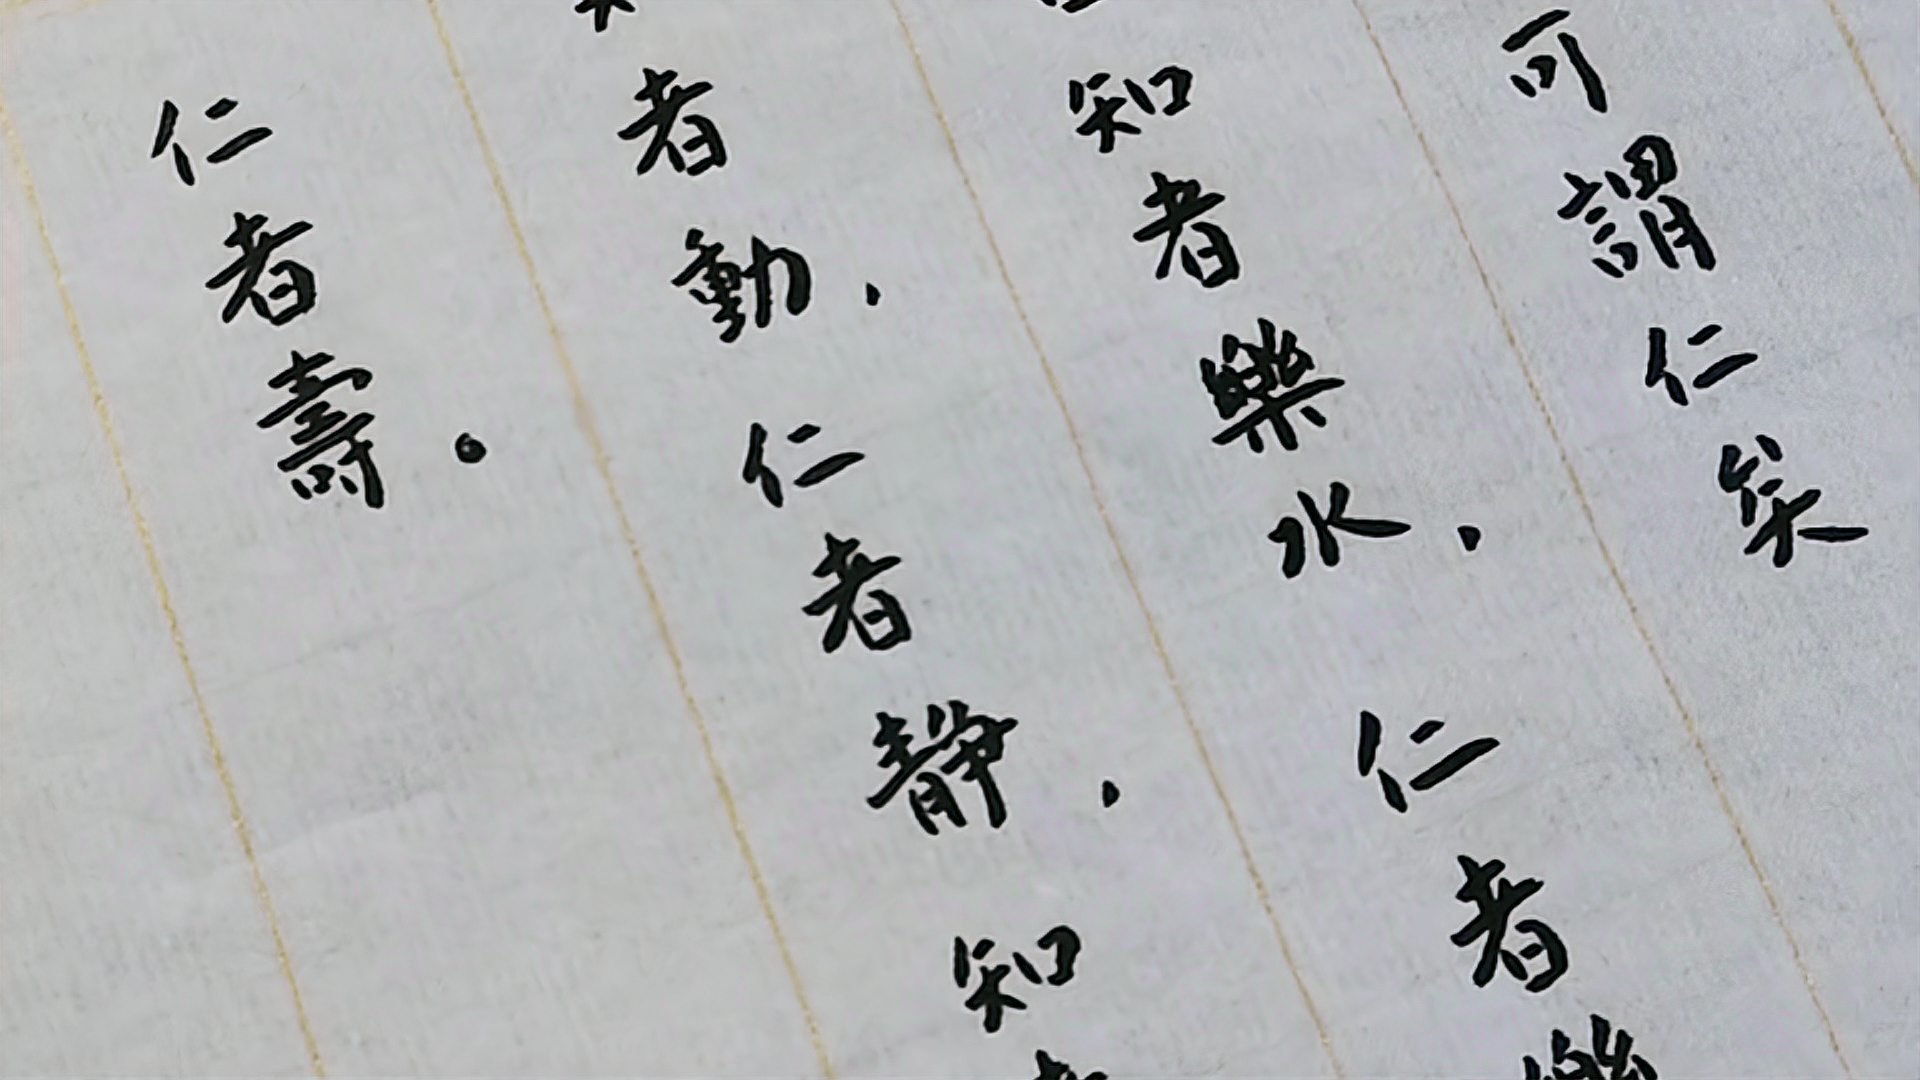 可謂仁矣
知者樂水，仁者樂
者動，仁者靜，知者
仁者壽。